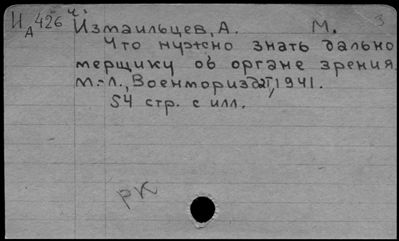 И 426 ч.з
А
3
Измаильцев, А. М.
Что нужно знать дально
мерщику об органе зрения.
М.-Л., Военмориздат, 1941.
54 стр. с илл.
РК